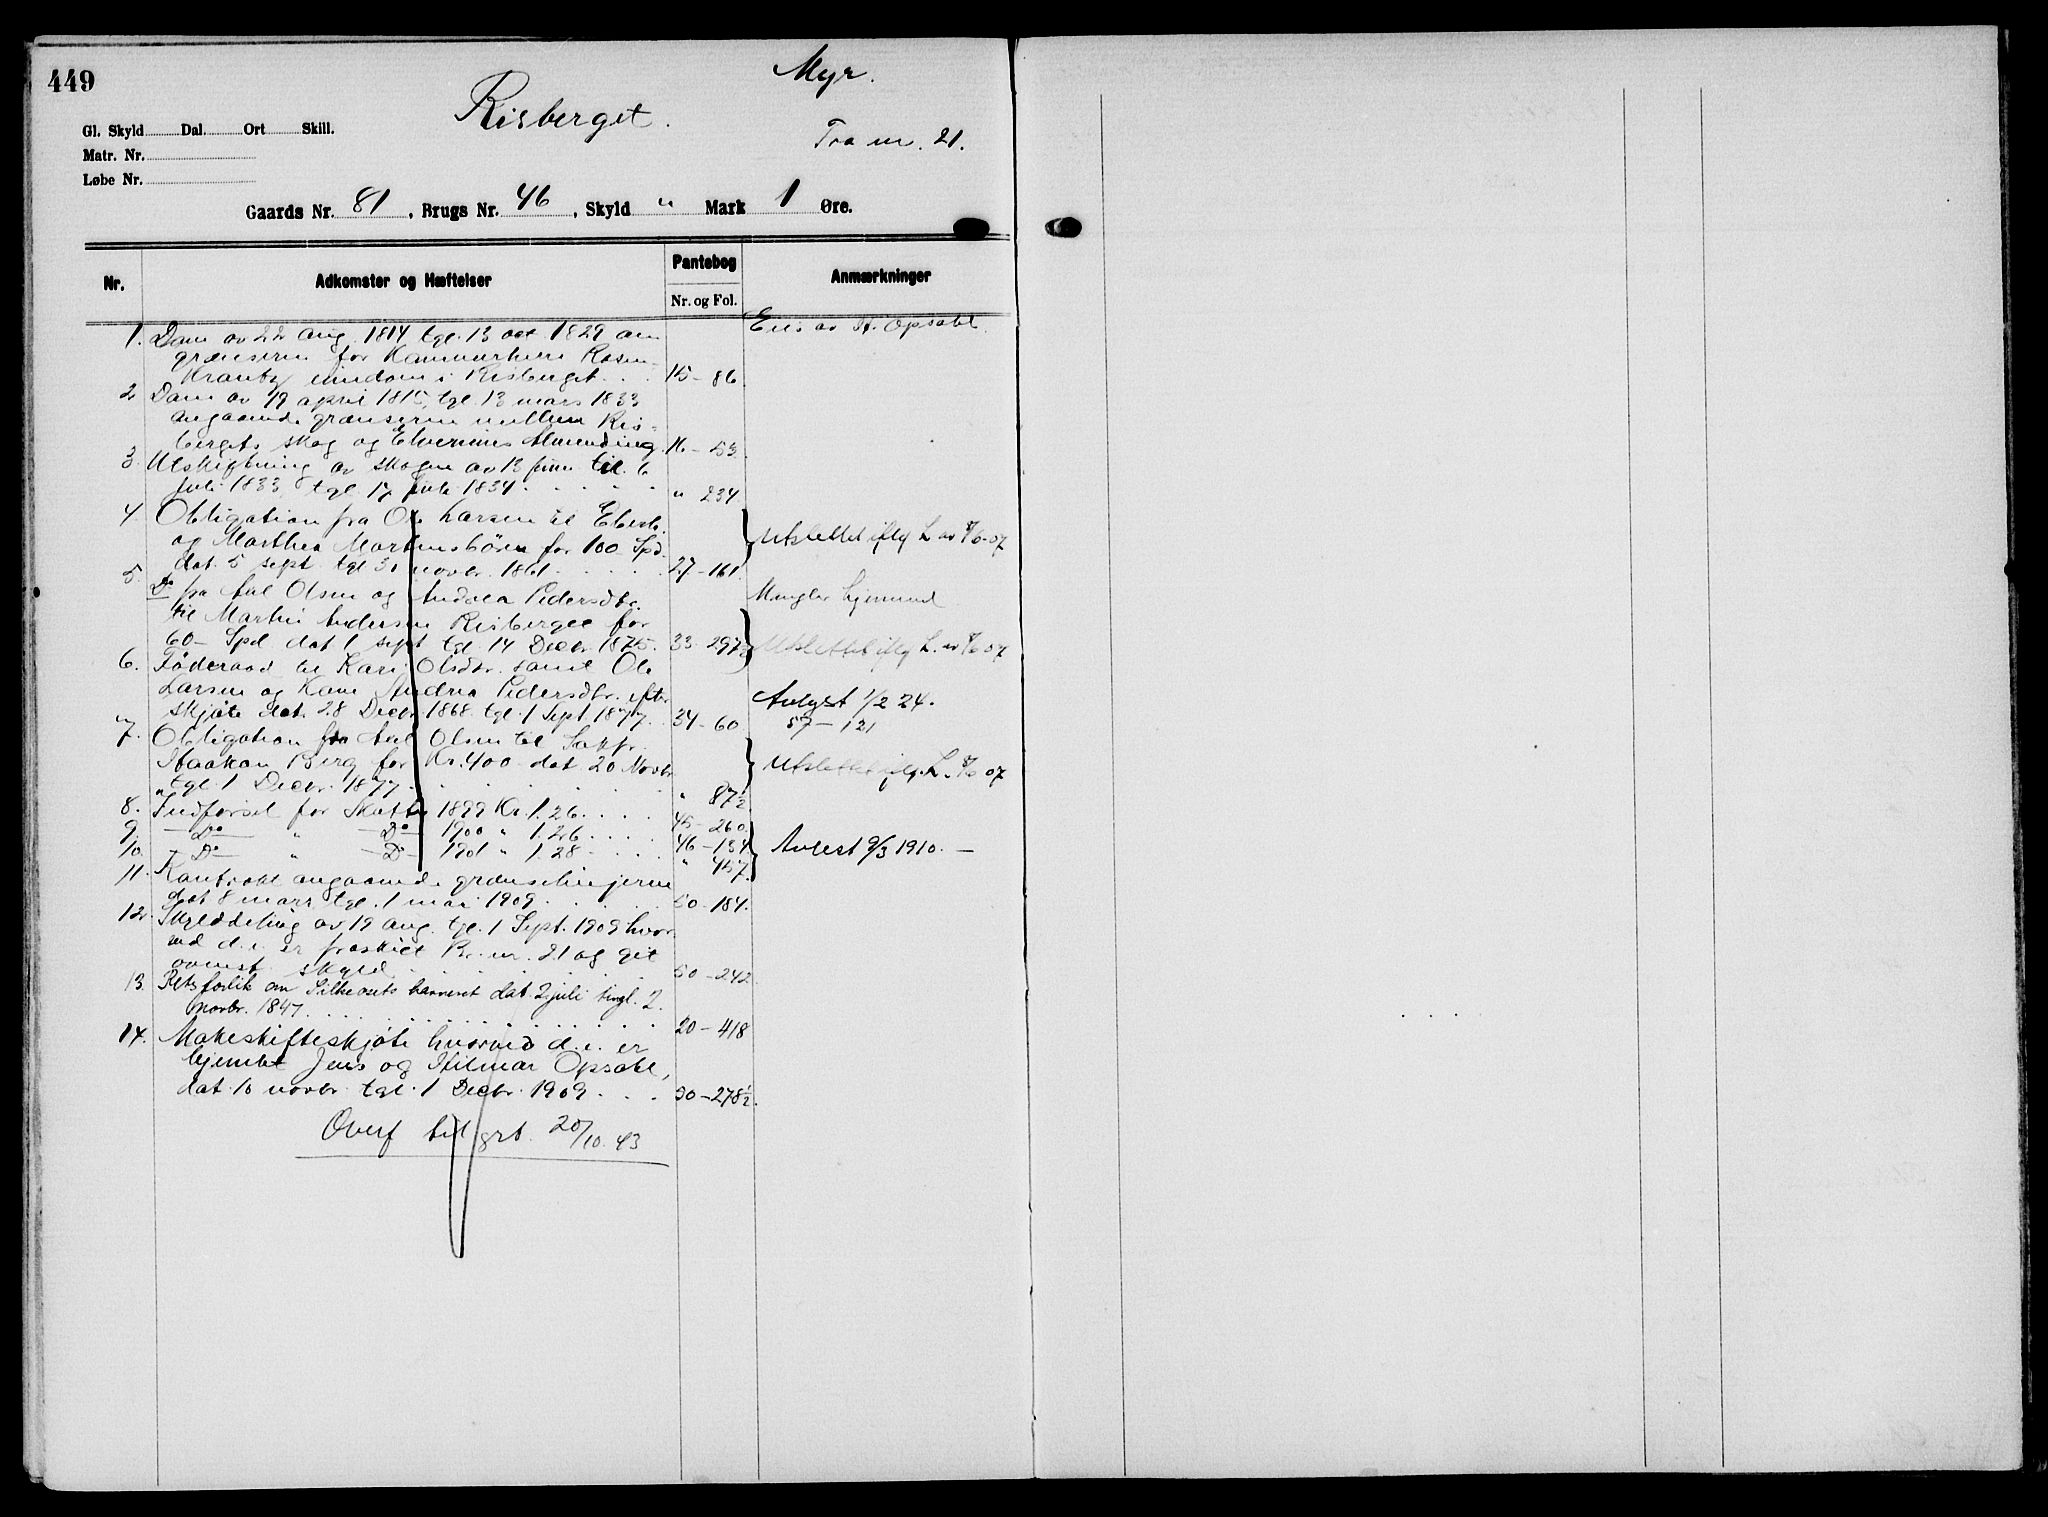 449
Myr.
Risberget.
Fra nr. 21.
Gl. Skyld Dal. Ort Skill.
Matr. Nr.
Løbe Nr.
Gaards Nr. 81, Brugs Nr. 46, Skyld " Mark 1 Øre.
Nr. Adkomster og Hæftelser Pantebog Nr. og Fol. Anmærkninger
1. Dom av 22 aug. 1814 tgl. 13 oct 1829 om Eies av H. Opsahl.
grænserne for Kammerherre Rosen-
Krantz eiendom i Risberget . . . 15 - 86.
2 Dom av 19 april 1815, tgl. 13 mars 1833
angaaende grænserne mellem Ris-
bergets skog og Elverums Almending. 16 - 53.
3. Utskiftning av skogen av 13 juni til 6
juli 1833, tgl 17 juli 1834 . . . . . " 234.
4. Obligation fra Ole Larsen til
og Marthea Martinsbörn for 100 Spd. Utslettet iflg L av 8/6-07
dat. 5 sept tgl 30 novbr. 1861 . . . . . 27 - 161.
5. Do fra Olsen og Andrea Pedersdtr. Mangler hjemmel
til Martin Andersen Risberget for
60 - Spd dat 1 sept tgl. 14 Decbr. 1875. 33 - 297½ Utslettet iflg L. av 8/6 07
6. Föderaad til Kari Olsdtr. samt Ole
Larsen og Kone Andrea Pedersdtr. efter Avlyst 1/2 24.
skjøte dat. 28 Decbr 1868 tgl. 1 Sept 1877. 34 - 60 57 - 121
7. Obligation fra Olsen til Sakfr.
Haakon Berg for Kr. 400 dat 20 Novbr Utslettet iflg. L. 8/6 07
tgl. 1 Decbr. 1877 . . . . . " 87½
8. Indförsel for Skatter 1899 Kr. 1.26. . . . . 45 - 260.
9. — Do — " — Do — 1900 " 1.26 . . . . 46 - 134
10. — Do — " — Do — 1901 " 1.28 . . . . " 457. Avlest 9/3 1910. —
11. Kontrakt angaaende grænselinjerne
dat 8 mars tgl. 1 mai 1909 . . . . . 50 - 184.
12. Skylddeling av 19 aug. tgl. 1 Sept. 1909 hvor
ved d. e. er fraskilt Br. nr. 21 og git
ovenst. skyld . . . . . 50 - 242
13. Retsforlik om Silkeosets havneret dat. 2 juli tingl. 2.
novbr. 1847 . . . . . 20 - 418
14. Makeskifteskjøte hvorved d. e. er
hjemlet Jens og Hilmar Opsahl,
dat. 10 novbr. tgl. 1 Decbr. 1909 . . . 50 - 278½.
Overf til grb. 20/10. 43